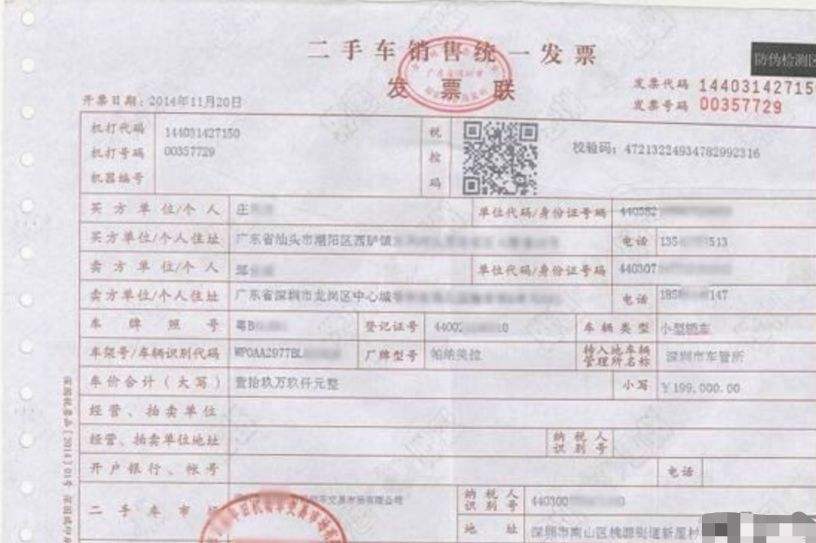 二手车销售统一发票
发票联
防伪检测区
发票代码 144031427150
发票号码 00357729
开票日期:2014年11月20日
机打代码 144031427150
机打号码 00357729
机器编号
税控码
校验码: 47213224934782992316
买方单位/个人 庄 单位代码/身份证号码 440582
买方单位/个人住址 广东省汕头市潮阳区西胪镇 电话 135 513
卖方单位/个人 单位代码/身份证号码 440307
卖方单位/个人住址 广东省深圳市龙岗区中心城 电话 185 147
车牌照号 粤B 登记证号 4400 0 车辆类型 小型轿车
车架号/车辆识别代码 WP0AA2977BL 厂牌型号 帕纳美拉 转入地车辆管理所名称 深圳市车管所
车价合计(大写) 壹拾玖万玖仟元整 小写 ¥199,000.00
经营、拍卖单位
经营、拍卖单位地址 纳税人识别号
开户银行、帐号 电话
二手车市场 纳税人识别号 440300 0
地址 深圳市南山区桃源街道新屋村